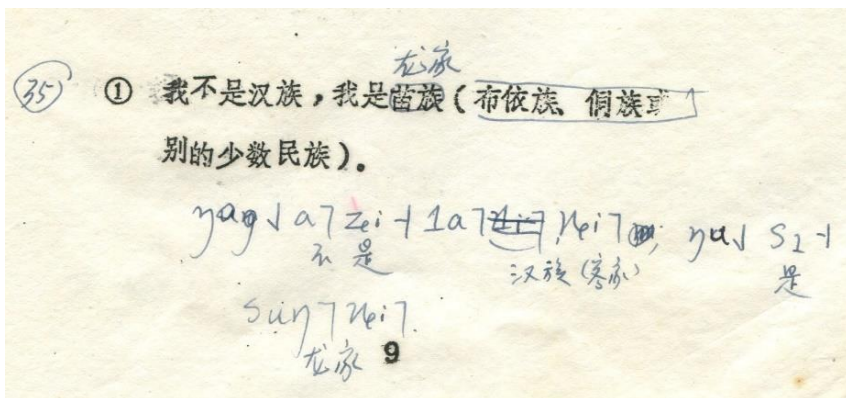 龙家
35 ① 我不是汉族，我是苗族（布依族、侗族或
别的少数民族）。
ŋaŋ˩ a˥ zei˧ la˥ ȵei˥, ŋa˩ sɿ˧
不是 汉族（客家） 是
suŋ˥ ȵei˥.
龙家 9